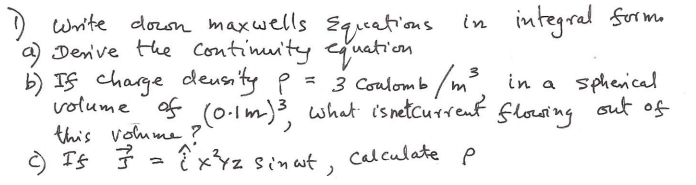 1) Write down maxwells Equations in integral form.
a) Derive the Continuity equation
b) If charge density ρ = 3 Coulomb/m³, in a spherical
volume of (0.1m)³, what is net current flowing out of
this volume?
c) If J⃗ = î x²yz sin ωt, Calculate ρ